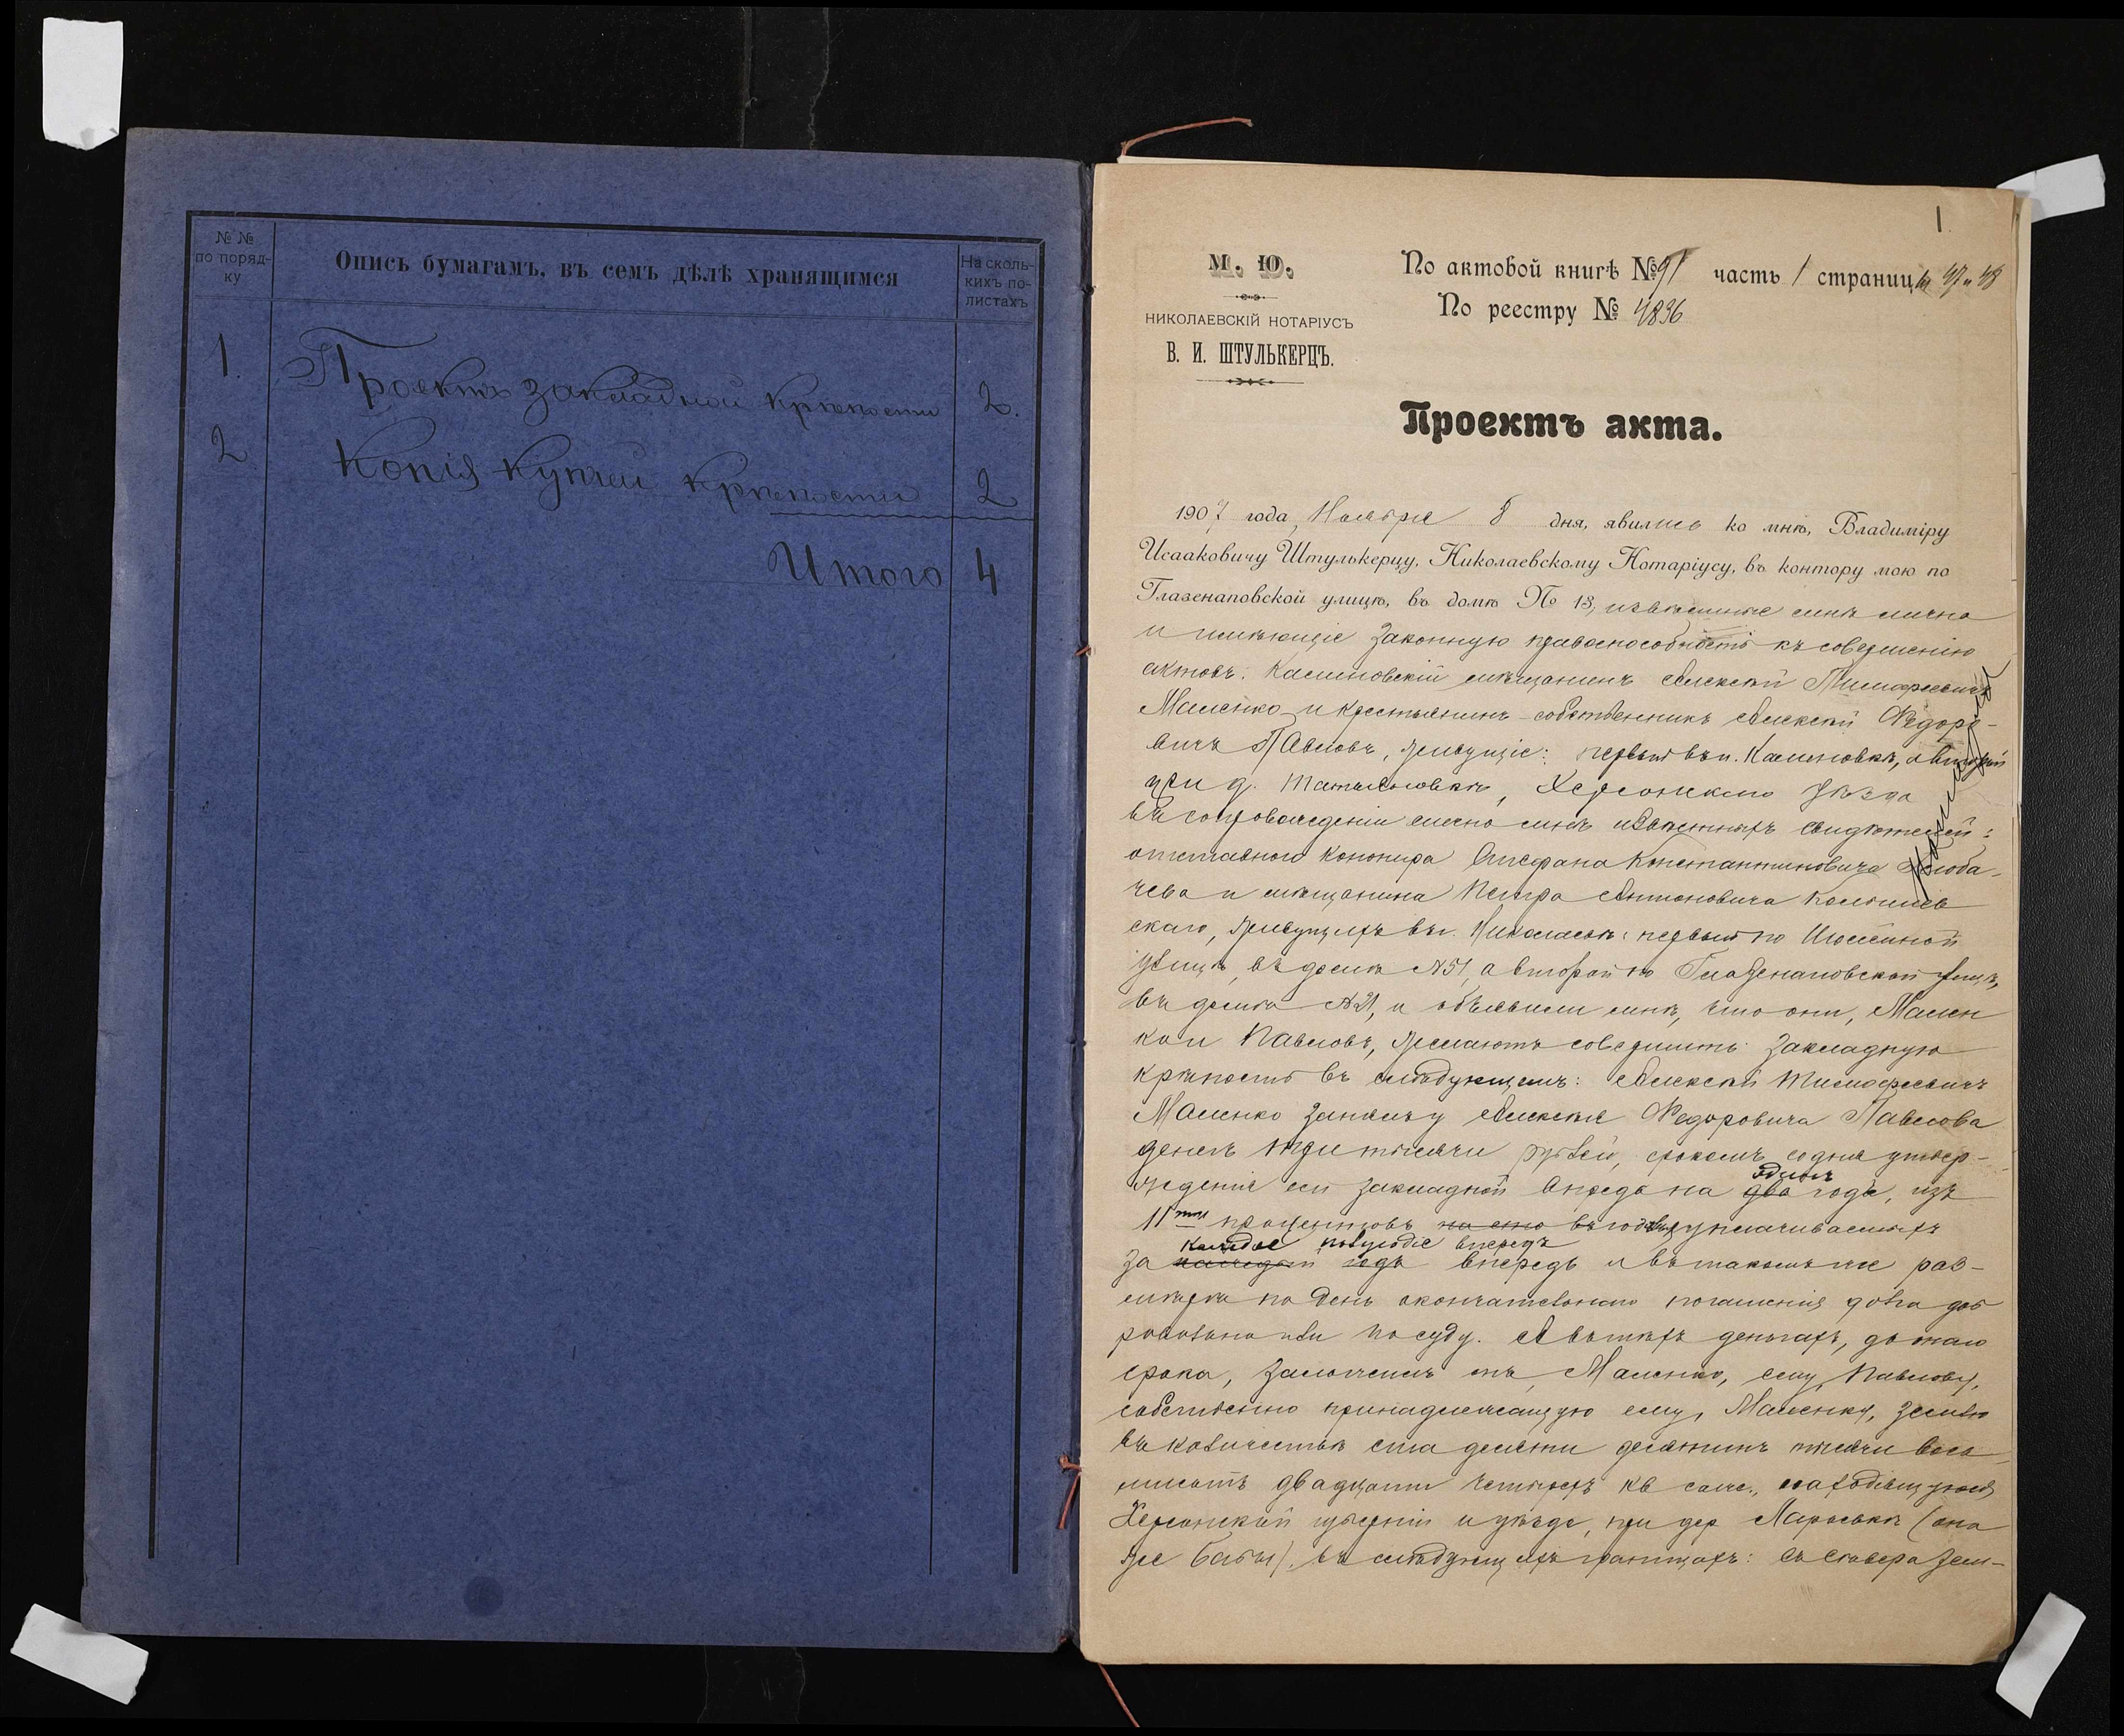 № №
по поряд-
ку
Опись бумагамъ, въ семъ дѣлѣ хранящимся
На сколь-
кихъ по-
листахъ
1. Проектъ закладной крѣпости 2.
2 Копія купчей крѣпости 2
Итого 4
1
М. Ю.
НИКОЛАЕВСКІЙ НОТАРІУСЪ
В. И. ШТУЛЬКЕРЦЪ.
По актовой книгѣ № 91 часть 1 страницы 47 и 48
По реестру № 4896
Проектъ акта.
1907 года, Ноября 8 дня, явились ко мнѣ, Владиміру
Исааковичу Штулькерцу, Николаевскому Нотаріусу, въ контору мою по
Глазенаповской улицѣ, въ домѣ № 13, извѣстные мнѣ лично
и имѣющіе законную правоспособность къ совершенію
актовъ: Калиновскій мѣщанинъ Алексѣй Тимофеевичъ
Маленко и крестьянинъ-собственникъ Алексѣй Федоро-
вичъ Павловъ, живущіе: первый въ п. Калиновкѣ, а второй
при д. Татьяновкѣ, Херсонскаго уѣзда
въ сопровожденіи лично мнѣ извѣстныхъ свидѣтелей:
отставного канонира Стефана Константиновича
чева и мѣщанина Петра Антоновича
скаго, живущихъ въ г. Николаевѣ: первый по
улицѣ, въ домѣ № 51, а второй по Глазенаповской улицѣ,
въ домѣ № 21, и объявили мнѣ, что они, Мален
ко и Павловъ, желаютъ совершить закладную
крѣпость въ слѣдующемъ: Алексѣй Тимофеевичъ
Маленко занялъ у Алексѣя Федоровича Павлова
денегъ три тысячи рублей, срокомъ со дня утвер-
одинъ
жденія сей закладной впредь на два года, изъ
11ти процентовъ на сто въ годъ, уплачиваемыхъ
каждое полугодіе впередъ
за каждый годъ впередъ и въ такомъ же раз-
мѣрѣ по день окончательнаго погашенія долга доб
ровольно или по суду. А въ тѣхъ деньгахъ, до того
срока, заложилъ онъ, Маленко, ему, Павлову,
собственно принадлежащую ему, Маленку, землю
въ количествѣ ста десяти десятинъ тысячи вось
мисотъ двадцати четырехъ кв саж., находящуюся
Херсонской губерніи и уѣзда, при дер (она
же Бабы), въ слѣдующихъ границахъ: съ сѣвера зем-